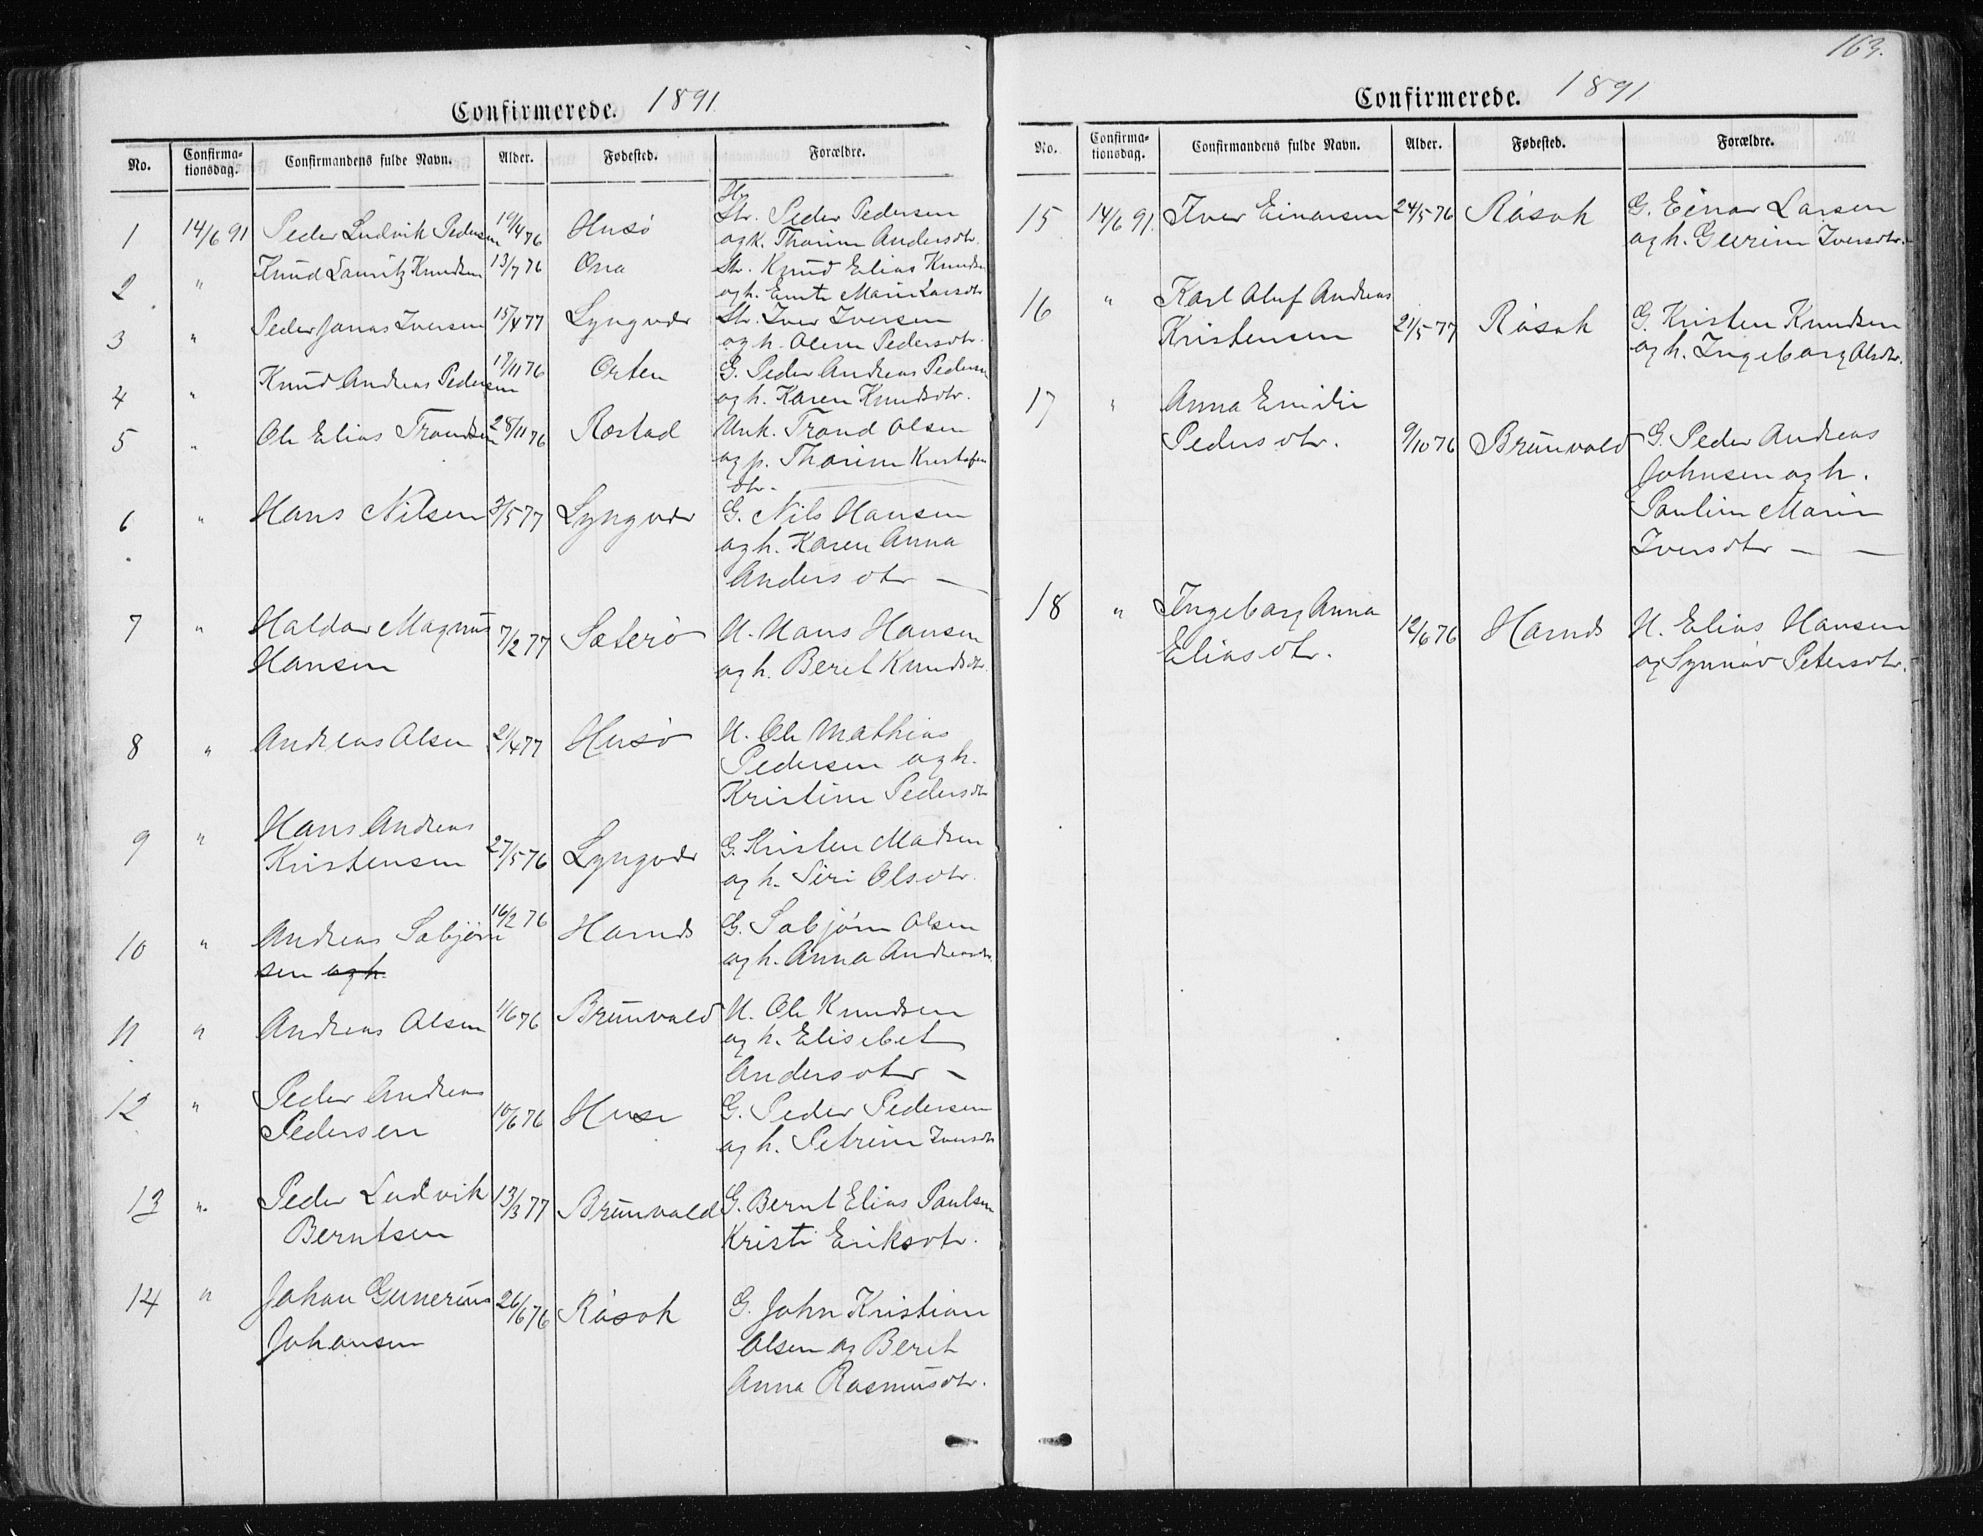 163.
Confirmerede. 1891.
No. Confirma-tionsdag. Confirmandens fulde Navn. Alder. Fødested. Forældre.
1 14/6 91 Peder Ludvik Pedersen 19/4 76 Husö Str. Peder Pedersen
og k. Thorine Andersdtr.
2 " Knud Lauritz Knudsen 13/7 76 Ona Str. Knud Elias Knudsen
og h. Marie Larsdtr
3 " Peder Jonas Iversen 15/4 77 Lyngvær Str. Iver Iversen
og h. Oline Pedersdtr.
4 " Knud Andreas Pedersen 17/11 76 Orten G. Peder Andreas Pedersen
og h. Karen Knudsdtr.
5 " Ole Elias Trondsen 28/11 76 Røstad Unk. Trond Olsen
og p. Thorine Kristofer
dtr.
6 " Hans Nilsen 3/5 77 Lyngvær G. Nils Hansen
og h. Karen Anna
Andersdtr –
7 " Haldor Magnus 7/2 77 Sæterö H. Hans Hansen
Hansen og h. Beret Knudsdtr.
8 " Andreas Olsen 21/4 77 Husö H. Ole Mathias
Pedersen og h.
Kristine Pedersdtr
9 " Hans Andreas
Kristensen 27/5 76 Lyngvær G. Kristen Madsen
og h. Siri Olsdtr.
10 " Andreas Sabjørn 16/2 76 Harnds G. Sabjørn Olsen
sen og h. og h. Anna Andreasdtr.
11 " Andreas Olsen 1/6 76 Brunvald H. Ole Knudsen
og h. Elisebet
Andersdtr –
12 " Peder Andreas
Pedersen 10/6 76 Huse G. Peder Pedersen
og h. Petrine Iversdtr
13 " Peder Ludvik 13/3 77 Brunvald G. Bernt Elias Paulsen
Berntsen Kristi Eriksdtr.
14 " Johan Gunerius 26/6 76 Råsok G. John Kristian
Johansen Olsen og Beret
Anna Rasmusdtr.
Confirmerede. 1891
No. Confirma-tionsdag. Confirmandens fulde Navn. Alder. Fødested. Forældre.
15 14/6 91. Iver Einarsen 24/5 76 Råsok G. Einar Larsen
og h. Gurine Iversdtr.
16 " Karl Oluf Andreas
Kristensen 21/5 77 Råsok G. Kristen Knudsen
og h. Ingeborg Olsdtr.
17 " Anna Emilie
Pedersdtr. 9/10 76 Brunvald G. Peder Andreas
Johnsen og h.
Pauline Marie
Iversdtr – –
18 " Ingeborg Anna
Eliasdtr. 12/6 76 Harnds H. Elias Hansen
og Synnøv Petersdtr.